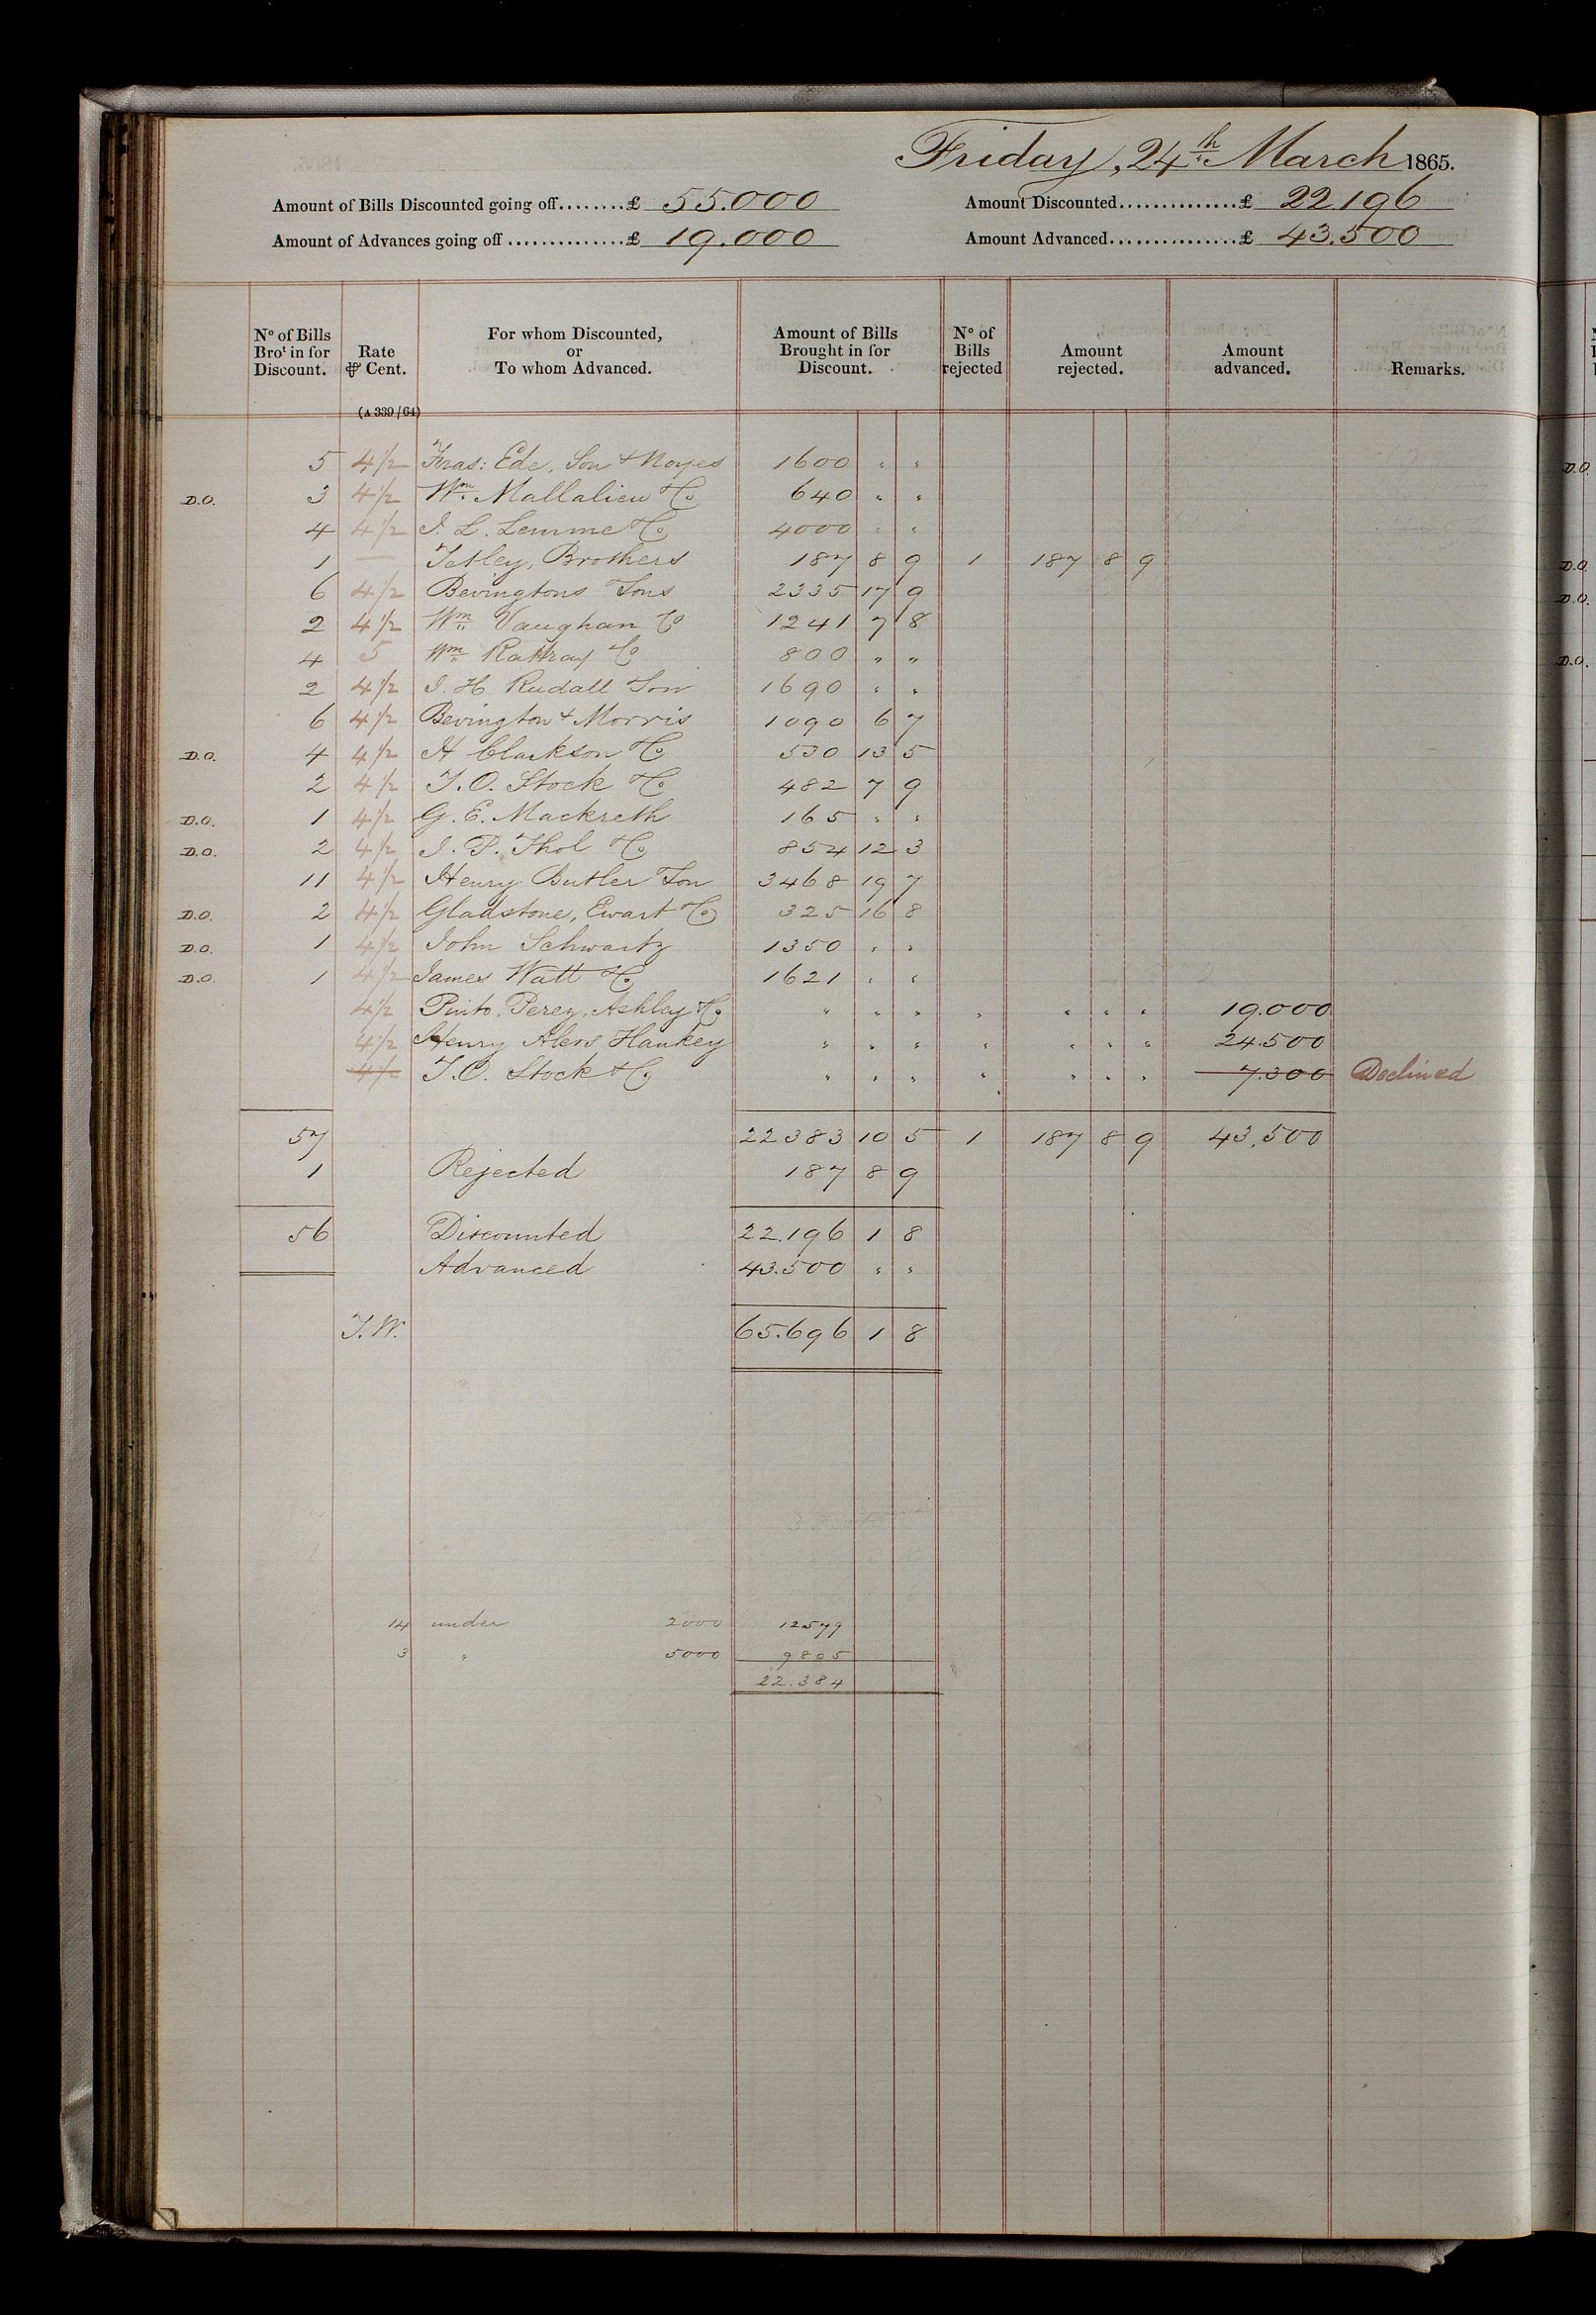 Friday, 24th March 1865.
Amount of Bills Discounted going off........£ 55.000 Amount Discounted..............£ 22.196
Amount of Advances going off..............£ 19.000 Amount Advanced...............£ 43.500
No of Bills Brot in for Discount. Rate ⅌ Cent. For whom Discounted, or To whom Advanced. Amount of Bills Brought in for Discount. No of Bills rejected Amount rejected. Amount advanced. Remarks.
(A 339/64)
5 4½ Fras: Ede, Son & Noyes 1600 " "
D.O. 3 4½ Wm. Mallalieu & Co 640 " "
4 4½ J. L. Lemme & Co 4000 " "
1 — Tetley, Brothers 187 8 9 1 187 8 9
6 4½ Bevingtons Sons 2335 17 9
2 4½ Wm Vaughan Co 1241 7 8
4 5 Wm Rattray Co 800 " "
2 4½ J. H. Rudall Son 1690 " "
6 4½ Bevington & Morris 1090 6 7
D.O. 4 4½ H Clarkson & Co 530 13 5
2 4½ T. O. Stock & Co 482 7 9
D.O. 1 4½ G. E. Mackreth 165 " "
D.O. 2 4½ J. P. Thol & Co 854 12 3
11 4½ Henry Butler Son 3468 19 7
D.O. 2 4½ Gladstone, Ewart & Co 325 16 8
D.O. 1 4½ John Schwartz 1350 " "
D.O. 1 4½ James Watt & Co 1621 " "
4½ Pinto, Perez, Ashley & Co " " " " " " " 19.000
4½ Henry Alers Hankey " " " " " " " 24.500
4½ T. O. Stock & Co " " " " " " " 7.300 Declined
57 22383 10 5 1 187 8 9 43,500
1 Rejected 187 8 9
56 Discounted 22.196 1 8
Advanced 43.500 " "
T. W. 65.696 1 8
14 under 2000 12579
3 " 5000 9805
22.384
D.O.
D.O.
D.O.
D.O.